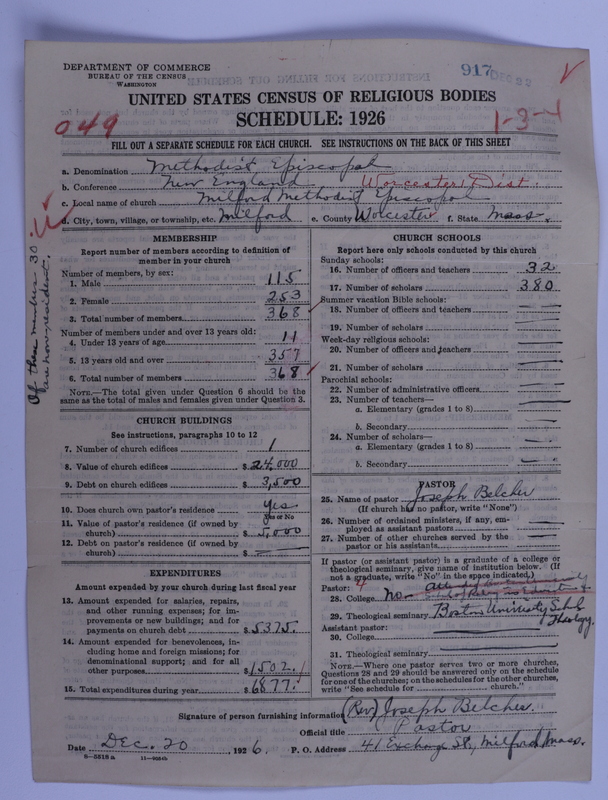 DEPARTMENT OF COMMERCE
BUREAU OF THE CENSUS
WASHINGTON
917 DEC 22
UNITED STATES CENSUS OF RELIGIOUS BODIES
SCHEDULE: 1926
049
1-3-4
FILL OUT A SEPARATE SCHEDULE FOR EACH CHURCH. SEE INSTRUCTIONS ON THE BACK OF THIS SHEET
a. Denomination Methodist Episcopal
b. Conference New England Worcester Dist.
c. Local name of church Milford Methodist Episcopal
d. City, town, village, or township, etc. Milford e. County Worcester f. State Mass.
Of these members 30 are non-resident.
MEMBERSHIP
Report number of members according to definition of member in your church
Number of members, by sex:
1. Male 115
2. Female 253
3. Total number of members 368
Number of members under and over 13 years old:
4. Under 13 years of age 11
5. 13 years old and over 357
6. Total number of members 368
NOTE.—The total given under Question 6 should be the same as the total of males and females given under Question 3.
CHURCH BUILDINGS
See instructions, paragraphs 10 to 12
7. Number of church edifices 1
8. Value of church edifices $24,000
9. Debt on church edifices $3,500
10. Does church own pastor's residence Yes
Yes or No
11. Value of pastor's residence (if owned by church) $5,000
12. Debt on pastor's residence (if owned by church) $
EXPENDITURES
Amount expended by your church during last fiscal year
13. Amount expended for salaries, repairs, and other running expenses; for improvements or new buildings; and for payments on church debt $5375
14. Amount expended for benevolences, including home and foreign missions; for denominational support; and for all other purposes $1502.
15. Total expenditures during year $6877.
CHURCH SCHOOLS
Report here only schools conducted by this church
Sunday schools:
16. Number of officers and teachers 32
17. Number of scholars 380
Summer vacation Bible schools:
18. Number of officers and teachers
19. Number of scholars
Week-day religious schools:
20. Number of officers and teachers
21. Number of scholars
Parochial schools:
22. Number of administrative officers
23. Number of teachers—
a. Elementary (grades 1 to 8)
b. Secondary
24. Number of scholars—
a. Elementary (grades 1 to 8)
b. Secondary
PASTOR
25. Name of pastor Joseph Belcher
(If church had no pastor, write "None")
26. Number of ordained ministers, if any, employed as assistant pastors
27. Number of other churches served by the pastor or his assistants
If pastor (or assistant pastor) is a graduate of a college or theological seminary, give name of institution below. (If not a graduate, write "No" in the space indicated.)
Pastor:
28. College No
29. Theological seminary Boston University Schl Theology.
Assistant pastor:
30. College
31. Theological seminary
NOTE.—Where one pastor serves two or more churches, Questions 28 and 29 should be answered only on the schedule for one of the churches; on the schedules for the other churches, write "See schedule for church."
Signature of person furnishing information (Rev) Joseph Belcher.
Official title Pastor
Date Dec. 20 1926. P. O. Address 41 Exchange St., Milford, Mass.